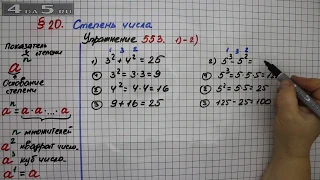 4АЛ5.RU
§ 20. Степень числа
Упражнение 553. 1)-2)
Показатель степени
aⁿ
Основание степени
aⁿ = a·a·a...a
n множителей
a² квадрат числа.
a³ куб числа.
a¹ = a
1 3 2
1) 3² + 4² = 25
① 3² = 3·3 = 9
② 4² = 4·4 = 16
③ 9 + 16 = 25
1 3 2
2) 5³ - 5² =
① 5³ = 5·5·5 = 12
② 5² = 5·5 = 25
③ 125 - 25 = 100